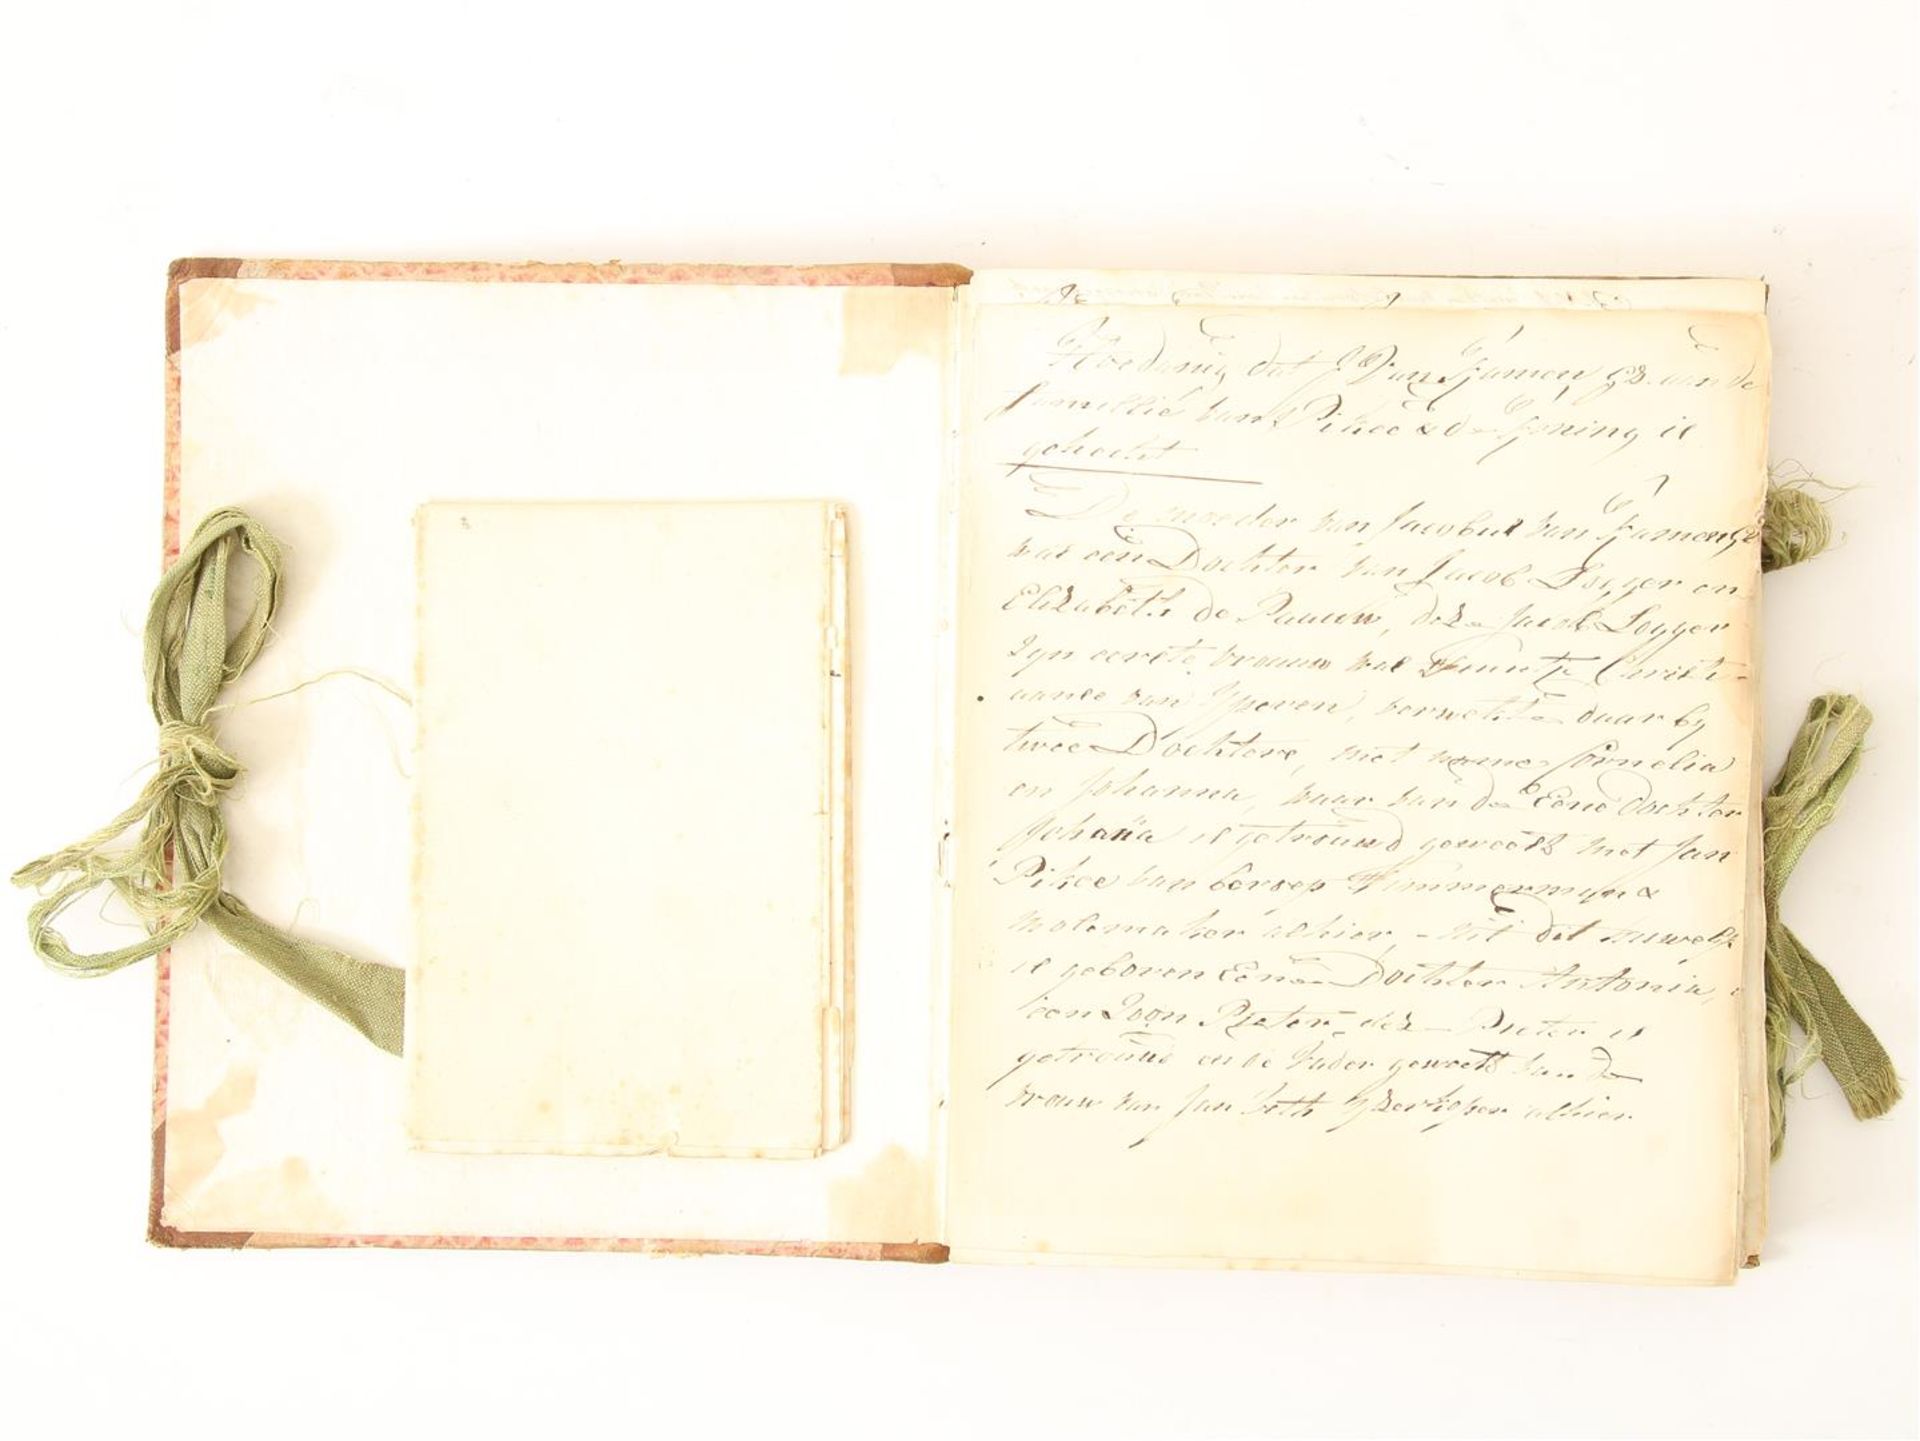 Hoedanig dat J Van Kramen Gz. aan de
familie van Pikee & de Koning is
gehecht
De moeder van Jacobus van Kramen Gz
was een Dochter van Jacob Logger en
Elizabeth de Pauw, deze Jacob Logger
zyn eerste vrouw was Christi-
aanse van Yperen, verwekte daar by
twee Dochters, met name Cornelia
en Johanna, waar van de Eene Dochter
Johaña is getrouwd geweest met Jan
Pikee van beroep Timmerman &
molemaker alhier, - uit dit huwelijk
is geboren Eene Dochter Antonia,
een Zoon Pieter, deze Pieter is
getrouwd en de Vader geweest van de
vrouw van Jan Yzerkoper alhier